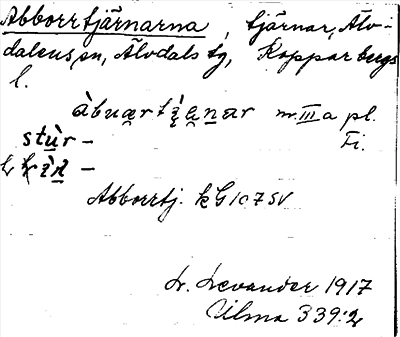 Abborrtjärnarna, tjärnar, Älv-
dalens sn, Älvdals tg, Kopparbergs
l.
àbuərtʃ̀ənar m. III a pl.
stùr – Fi.
–
Abborrtj. kG 1075V
L. Levander 1917
Ulma 339:2